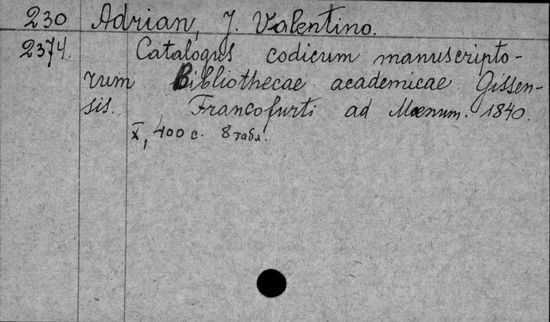 230 Adrian, J. Valentino.
2374. Catalogus codicum manuscripto-
rum Bibliothecae academicae Gissen-
sis. Francofurti ad Moenum. 1840.
X, 400 с. 8 табл.